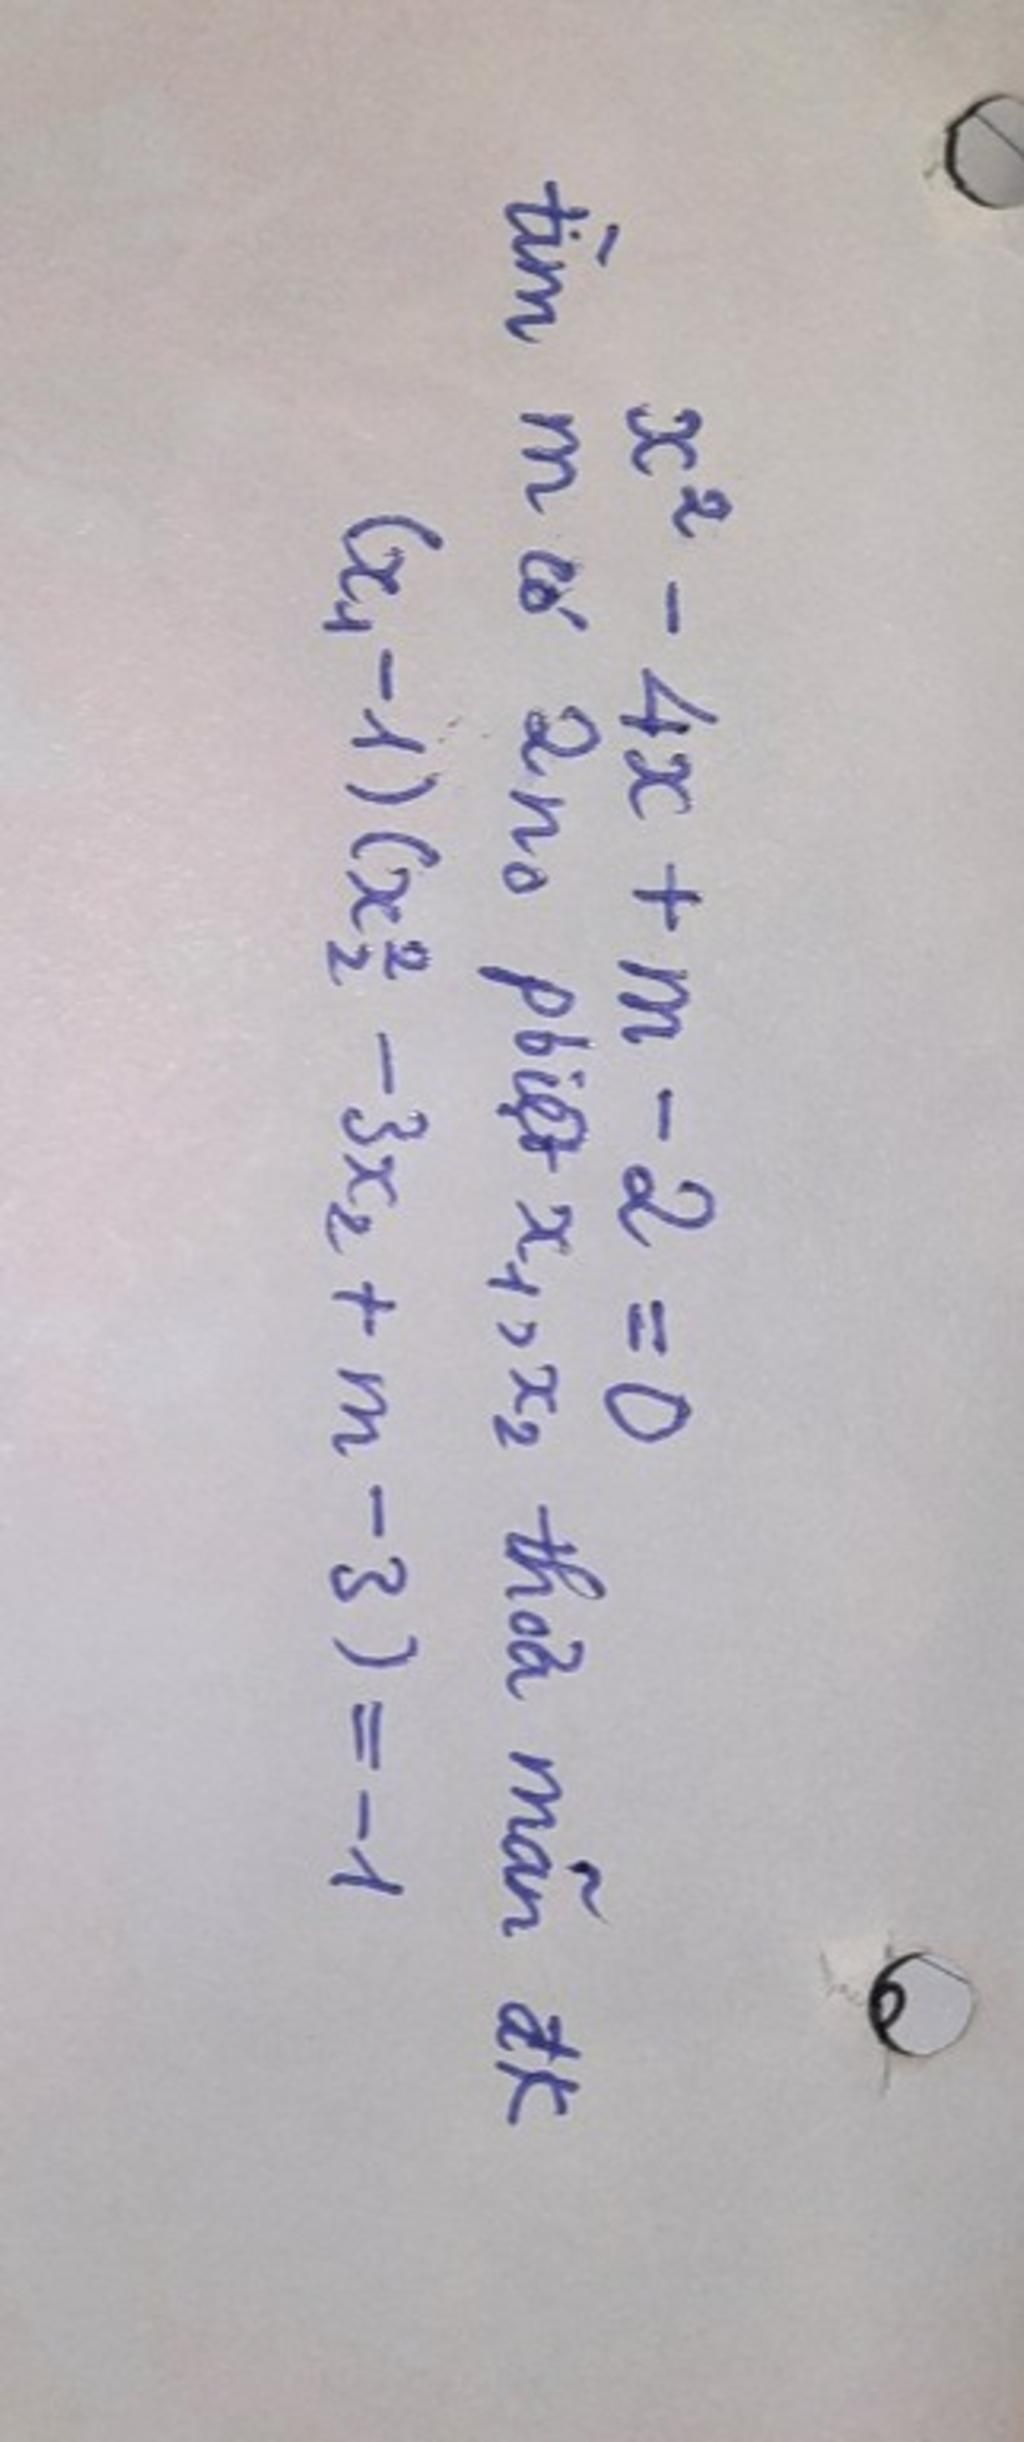 x² - 4x + m - 2 = 0
tìm m có 2 no pbiệt x₁, x₂ thoả mãn đk
(x₁ - 1)(x₂² - 3x₂ + m - 3) = -1